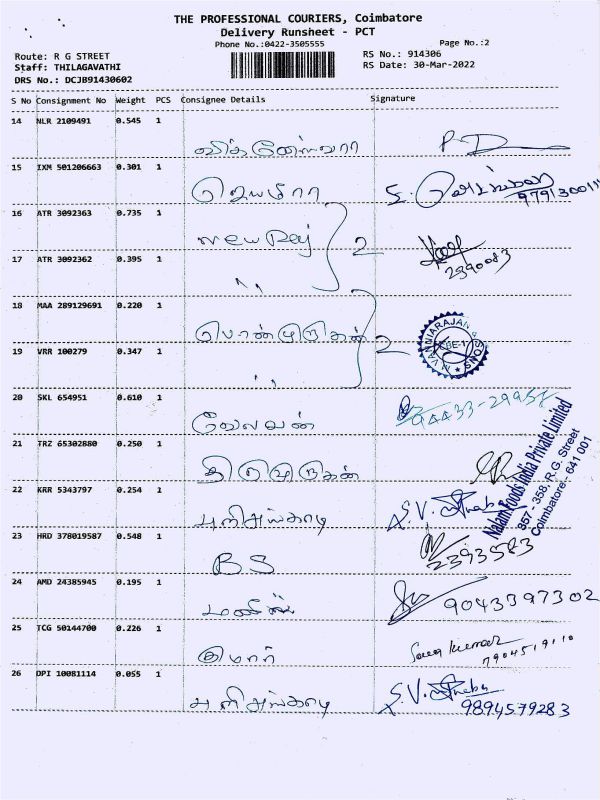 THE PROFESSIONAL COURIERS, Coimbatore
Delivery Runsheet - PCT
Phone No.:0422-3505555
Page No.:2
Route: R G STREET
RS No.: 914306
Staff: THILAGAVATHI
RS Date: 30-Mar-2022
DRS No.: DCJB91430602
S No Consignment No Weight PCS Consignee Details Signature
14 NLR 2109491 0.545 1
15 IXM 501206663 0.301 1
16 ATR 3092363 0.735 1 New Raj 2
17 ATR 3092362 0.395 1 " 2390083
18 MAA 289129691 0.220 1 பொன்முருகன் 2
19 VRR 100279 0.347 1 "
20 SKL 654951 0.610 1 வேலவன்
21 TRZ 65302880 0.250 1 திருமுருகன்
Nalam Foods India Private Limited
357 - 358, R.G. Street
Coimbatore - 641 001
22 KRR 5343797 0.254 1 S.V.
23 HRD 378019587 0.548 1 BS 2393583
24 AMD 24385945 0.195 1 9043397302
25 TCG 50144700 0.226 1 குமார்
26 DPI 10081114 0.055 1 S.V. 9894579283